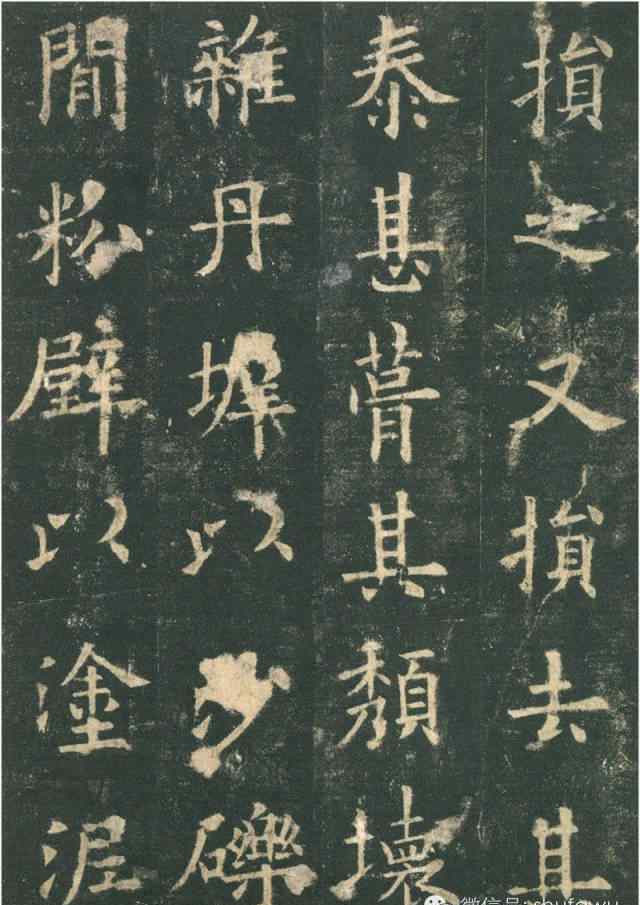 損之又損去其
泰甚葺其頹壞
雜丹墀以沙礫
間粉壁以塗泥
微信号: shufawu